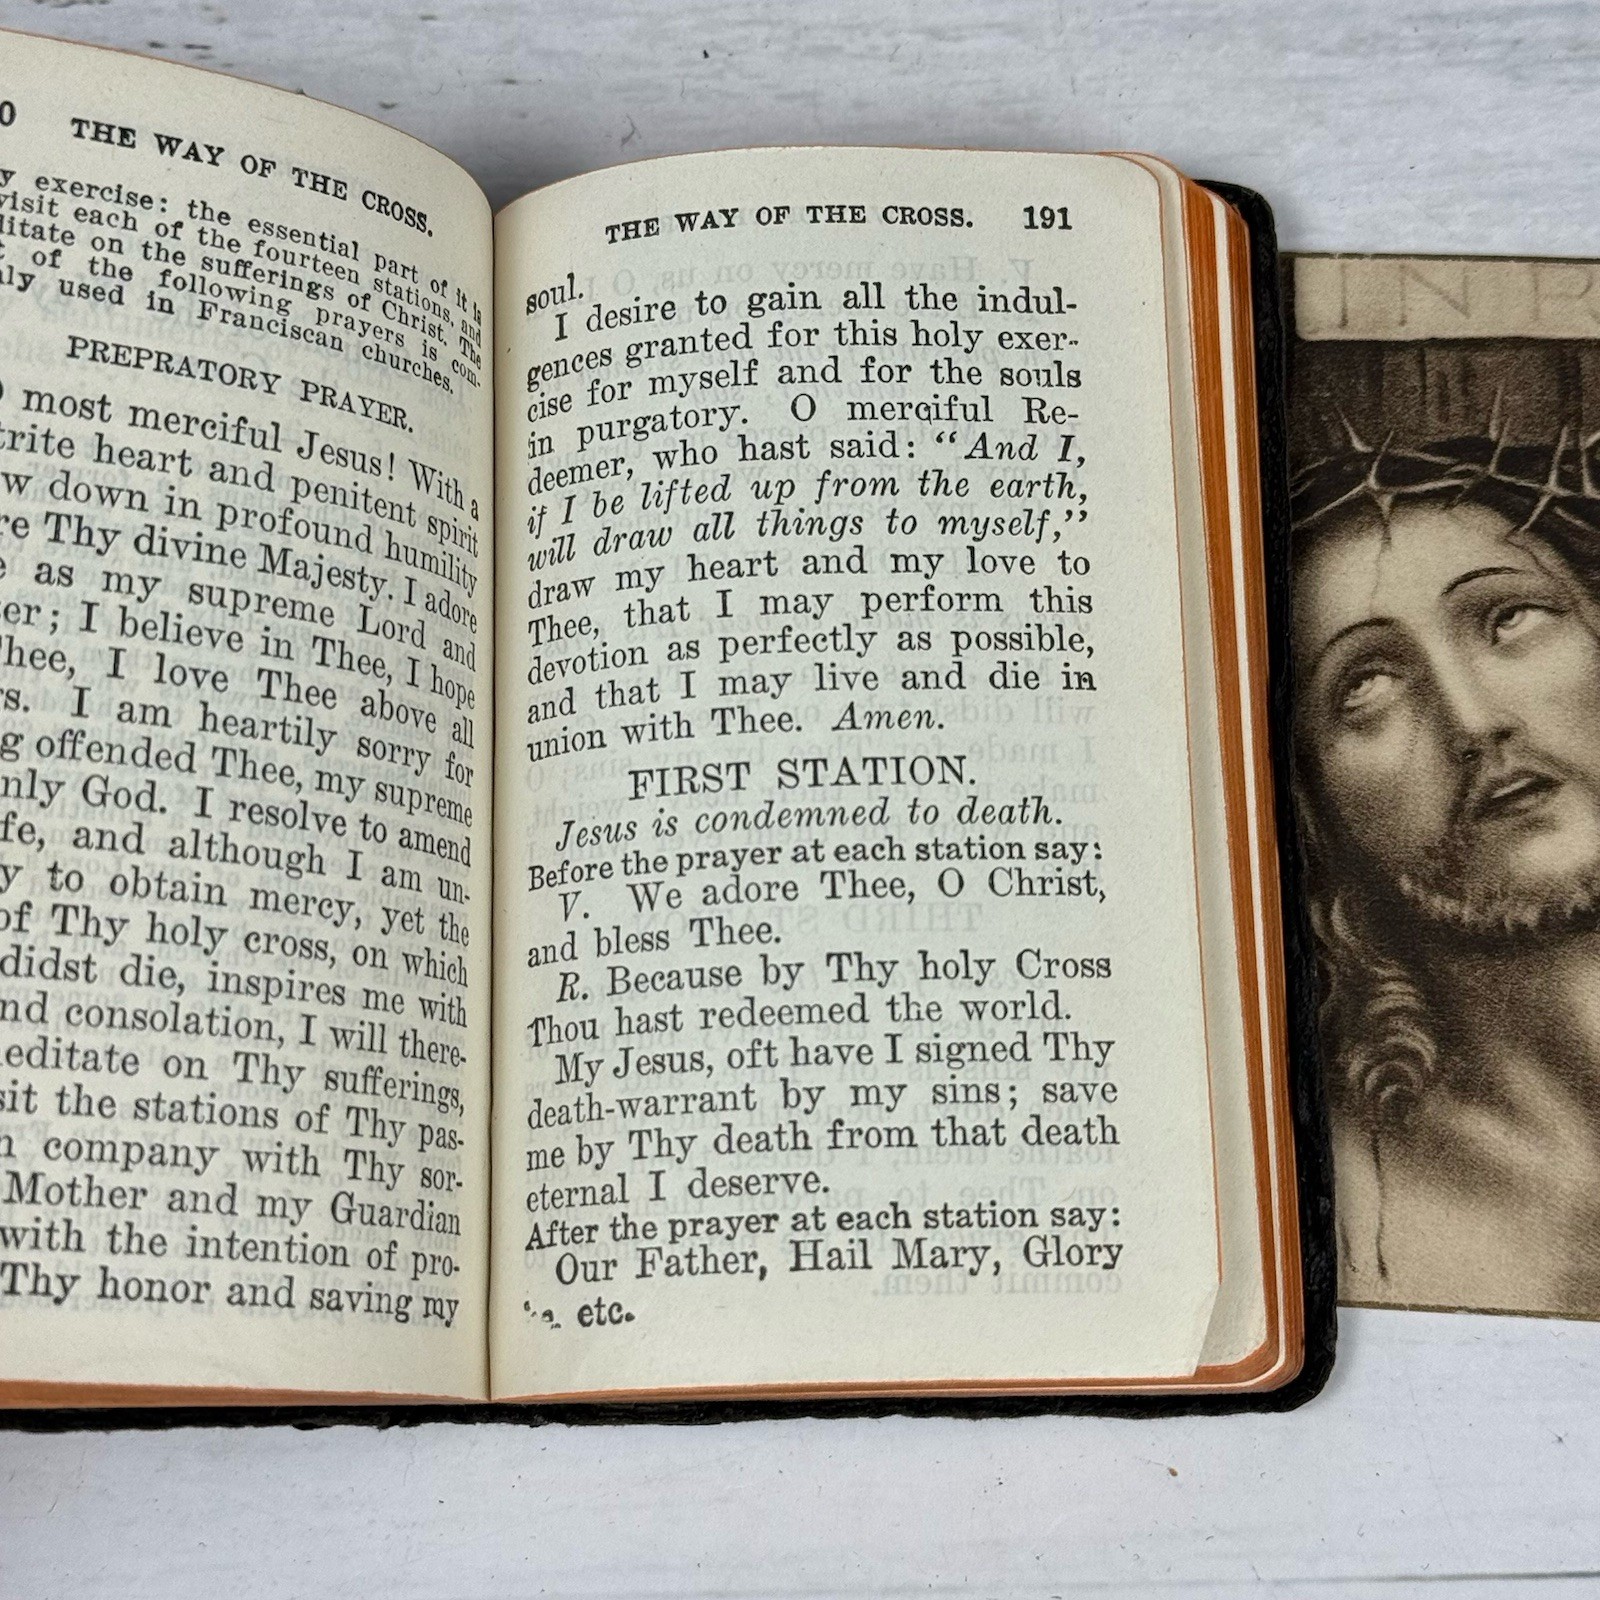 0 THE WAY OF THE CROSS.
y exercise: the essential part of it is
visit each of the fourteen stations, and
ditate on the sufferings of Christ. The
t of the following prayers is com-
nly used in Franciscan churches.
PREPRATORY PRAYER.
O most merciful Jesus! With a
trite heart and penitent spirit
w down in profound humility
re Thy divine Majesty. I adore
e as my supreme Lord and
ter; I believe in Thee, I hope
Thee, I love Thee above all
rs. I am heartily sorry for
g offended Thee, my supreme
nly God. I resolve to amend
fe, and although I am un-
y to obtain mercy, yet the
of Thy holy cross, on which
didst die, inspires me with
nd consolation, I will there-
editate on Thy sufferings,
sit the stations of Thy pas-
n company with Thy sor-
Mother and my Guardian
with the intention of pro-
Thy honor and saving my
THE WAY OF THE CROSS. 191
soul.
I desire to gain all the indul-
gences granted for this holy exer-
cise for myself and for the souls
in purgatory. O merciful Re-
deemer, who hast said: “And I,
if I be lifted up from the earth,
will draw all things to myself,”
draw my heart and my love to
Thee, that I may perform this
devotion as perfectly as possible,
and that I may live and die in
union with Thee. Amen.
FIRST STATION.
Jesus is condemned to death.
Before the prayer at each station say:
V. We adore Thee, O Christ,
and bless Thee.
R. Because by Thy holy Cross
Thou hast redeemed the world.
My Jesus, oft have I signed Thy
death-warrant by my sins; save
me by Thy death from that death
eternal I deserve.
After the prayer at each station say:
Our Father, Hail Mary, Glory
etc.
INR